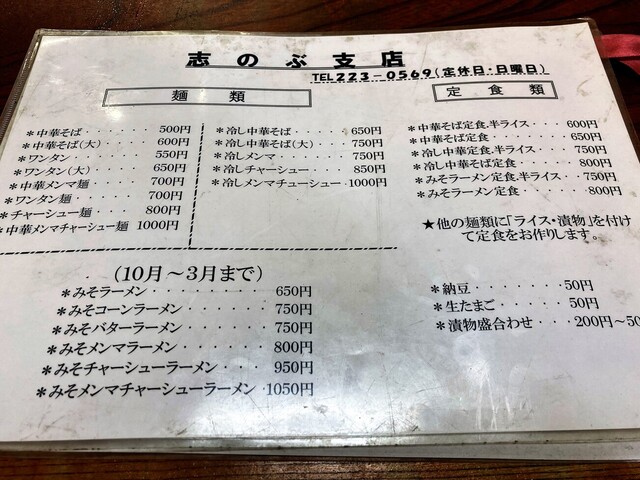 志のぶ支店
TEL223-0569(定休日・日曜日)
麺類
＊中華そば・・・・・・500円
＊中華そば(大)・・・・600円
＊ワンタン・・・・・・550円
＊ワンタン(大)・・・・650円
＊中華メンマ麺・・・・700円
＊ワンタン麺・・・・・700円
＊チャーシュー麺・・・800円
＊中華メンマチャーシュー麺 1000円
＊冷し中華そば・・・・650円
＊冷し中華そば(大)・・750円
＊冷しメンマ・・・・・750円
＊冷しチャーシュー・・850円
＊冷しメンマチューシュー・1000円
定食類
＊中華そば定食.半ライス・・600円
＊中華そば定食・・・・・650円
＊冷し中華定食.半ライス・・750円
＊冷し中華そば定食・・・800円
＊みそラーメン定食.半ライス・750円
＊みそラーメン定食・・・・800円
★他の麺類に「ライス・漬物」を付け
て定食をお作りします。
(10月～3月まで)
＊みそラーメン・・・・・・・650円
＊みそコーンラーメン・・・・750円
＊みそバターラーメン・・・・750円
＊みそメンマラーメン・・・・800円
＊みそチャーシューラーメン・・・950円
＊みそメンマチャーシューラーメン・1050円
＊納豆・・・・・・・50円
＊生たまご・・・・・50円
＊漬物盛合わせ・・・200円～50